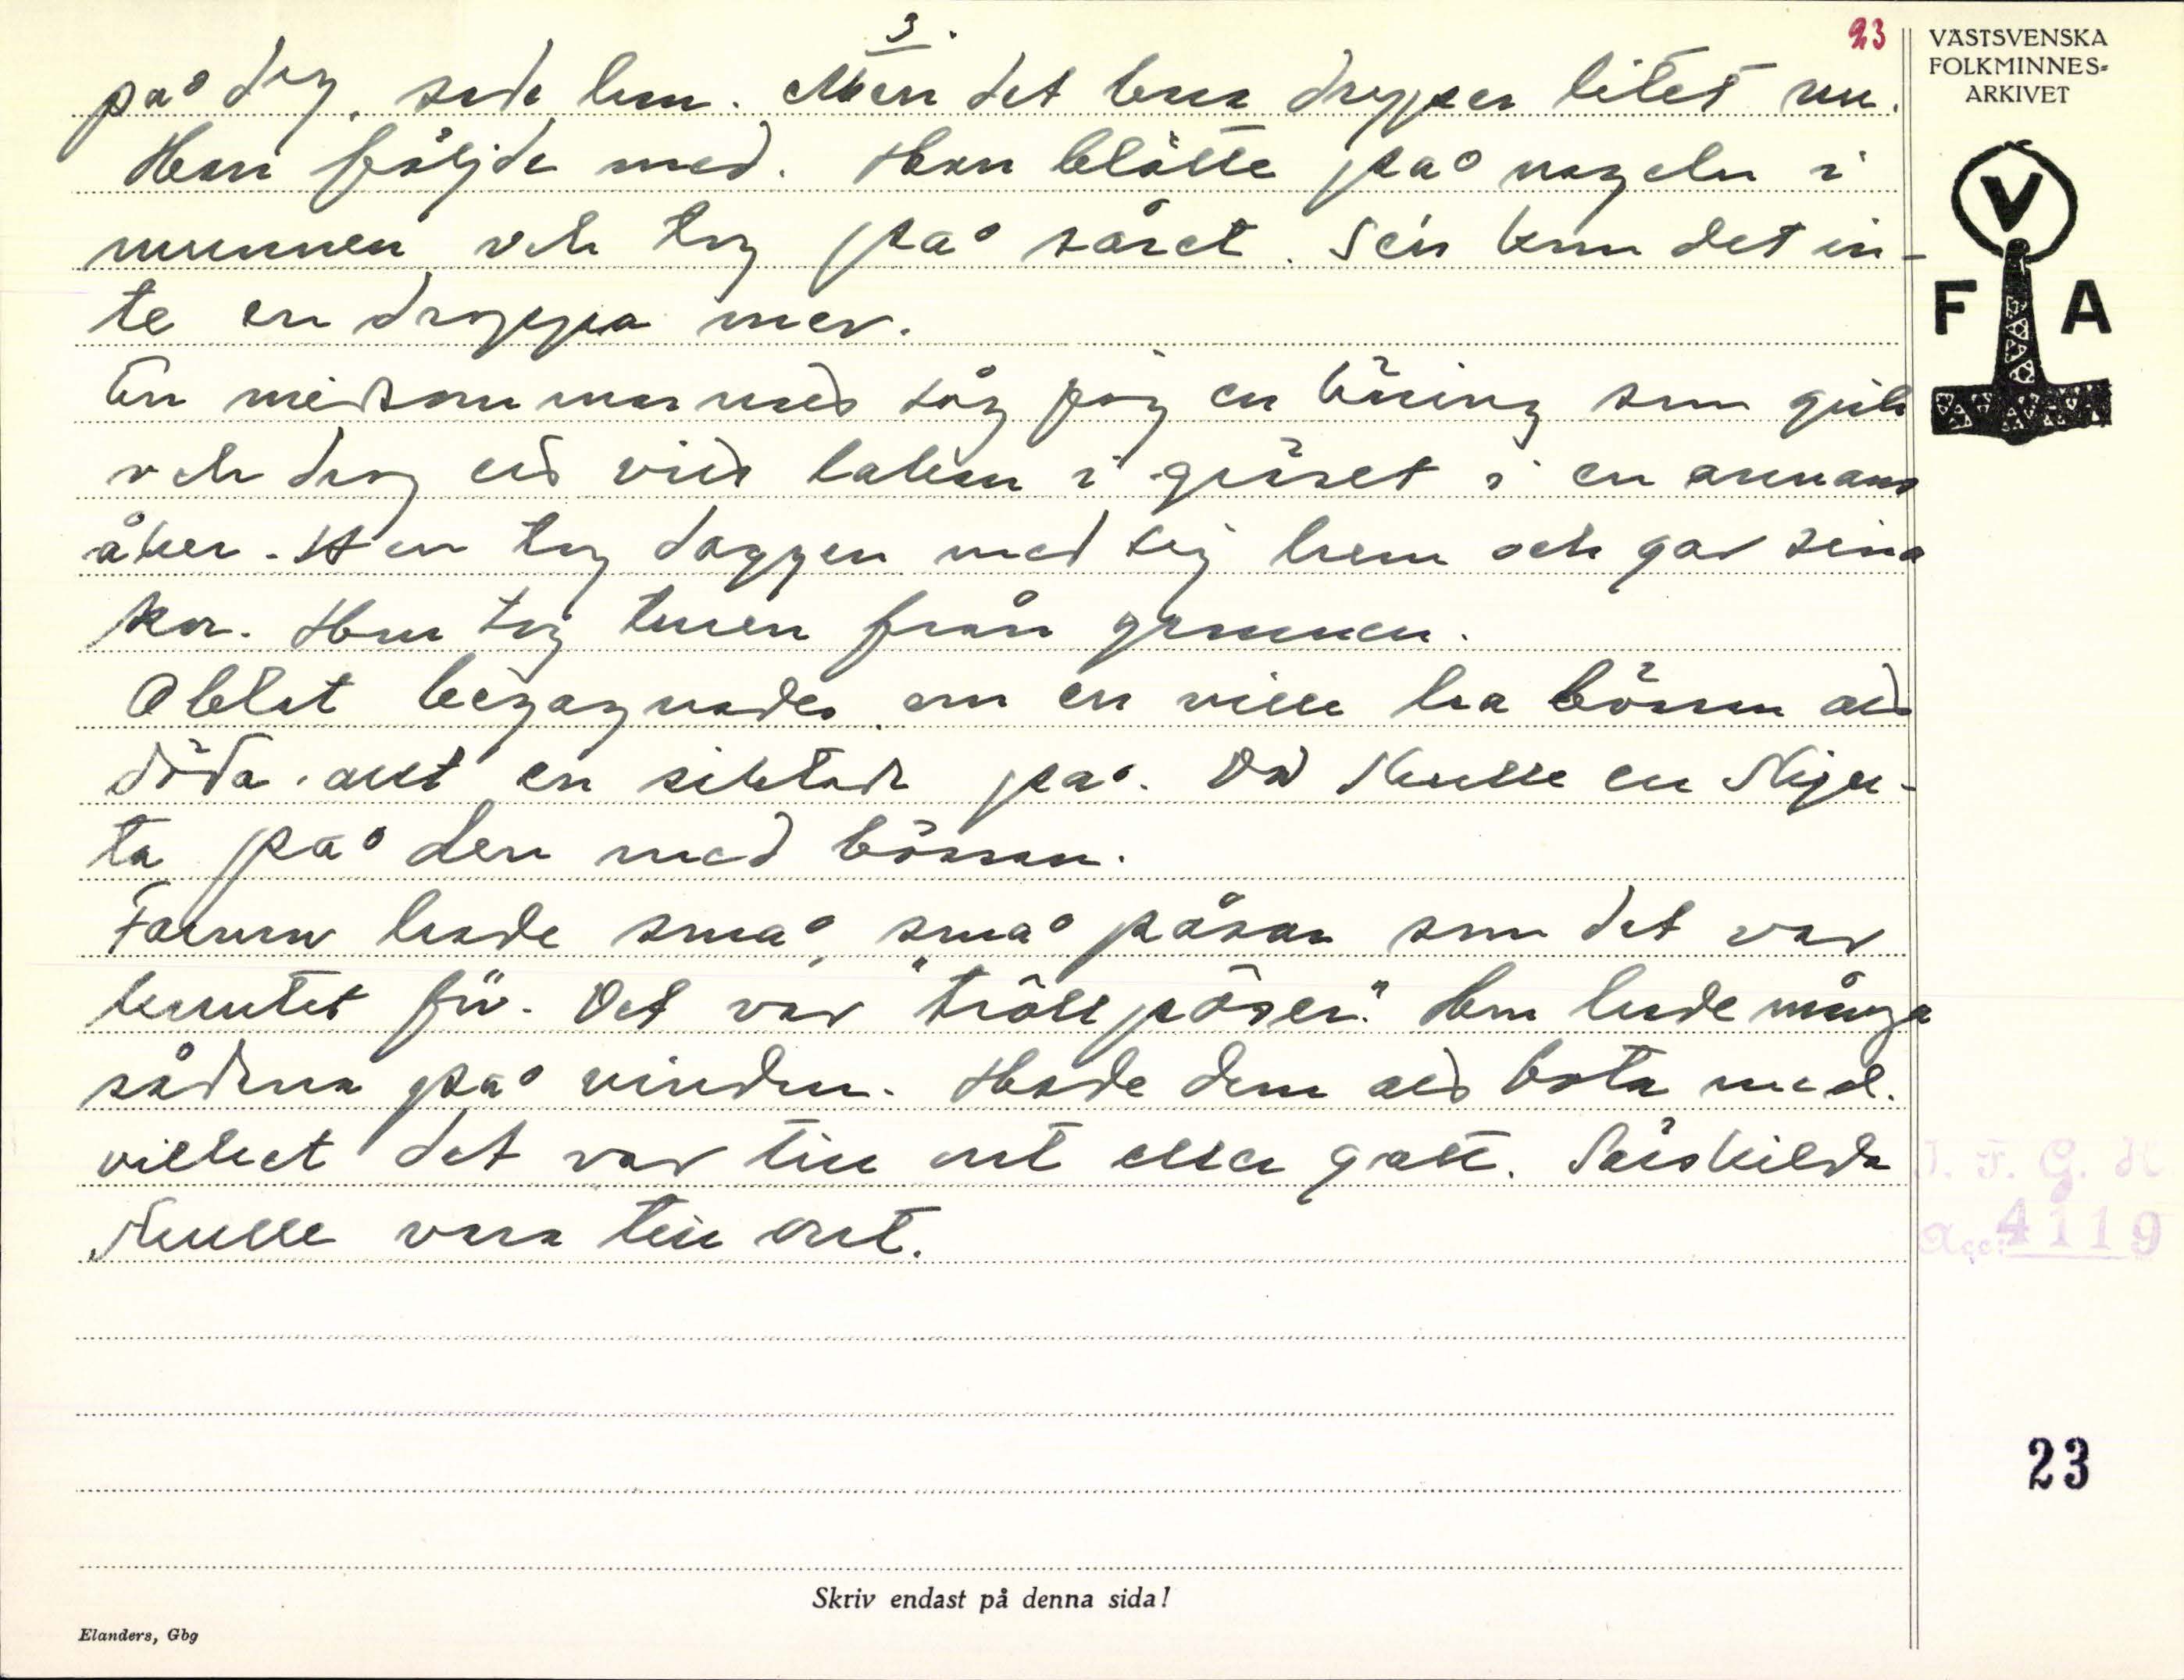 3.
23
på dej, sade hon. Men det bara droppar litet nu.
Han följde med. Hon blötte på nageln i
munnen och tog på såret. Sen kom det in-
te en droppa mer.
En midsommarnatt såg jag en käring som gick
och drog ett vitt lakan i gräset i en annans
åker. Hon tog daggen med sig hem och gav sina
kor. Hon tog turen från grannen.
Oblat begagnades om en ville ha bössan att
döda allt en siktade på. Då skulle en skju-
ta på den med bössan.
Farmor hade små, små påsar som det var
knutet för. Det var "trollpåser." Hon hade många
sådana på vinden. Hade dem att bota med.
vilket det var till ont eller gott. Särskilda
skulle vara till ont.
VÄSTSVENSKA
FOLKMINNES-
ARKIVET
V
F A
I. F. G. H
Acc. 4119
23
Skriv endast på denna sida!
Elanders, Gbg